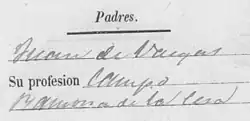 Padres.
Juan de Vargas
Su profesion Campo
Ramona de la Cera